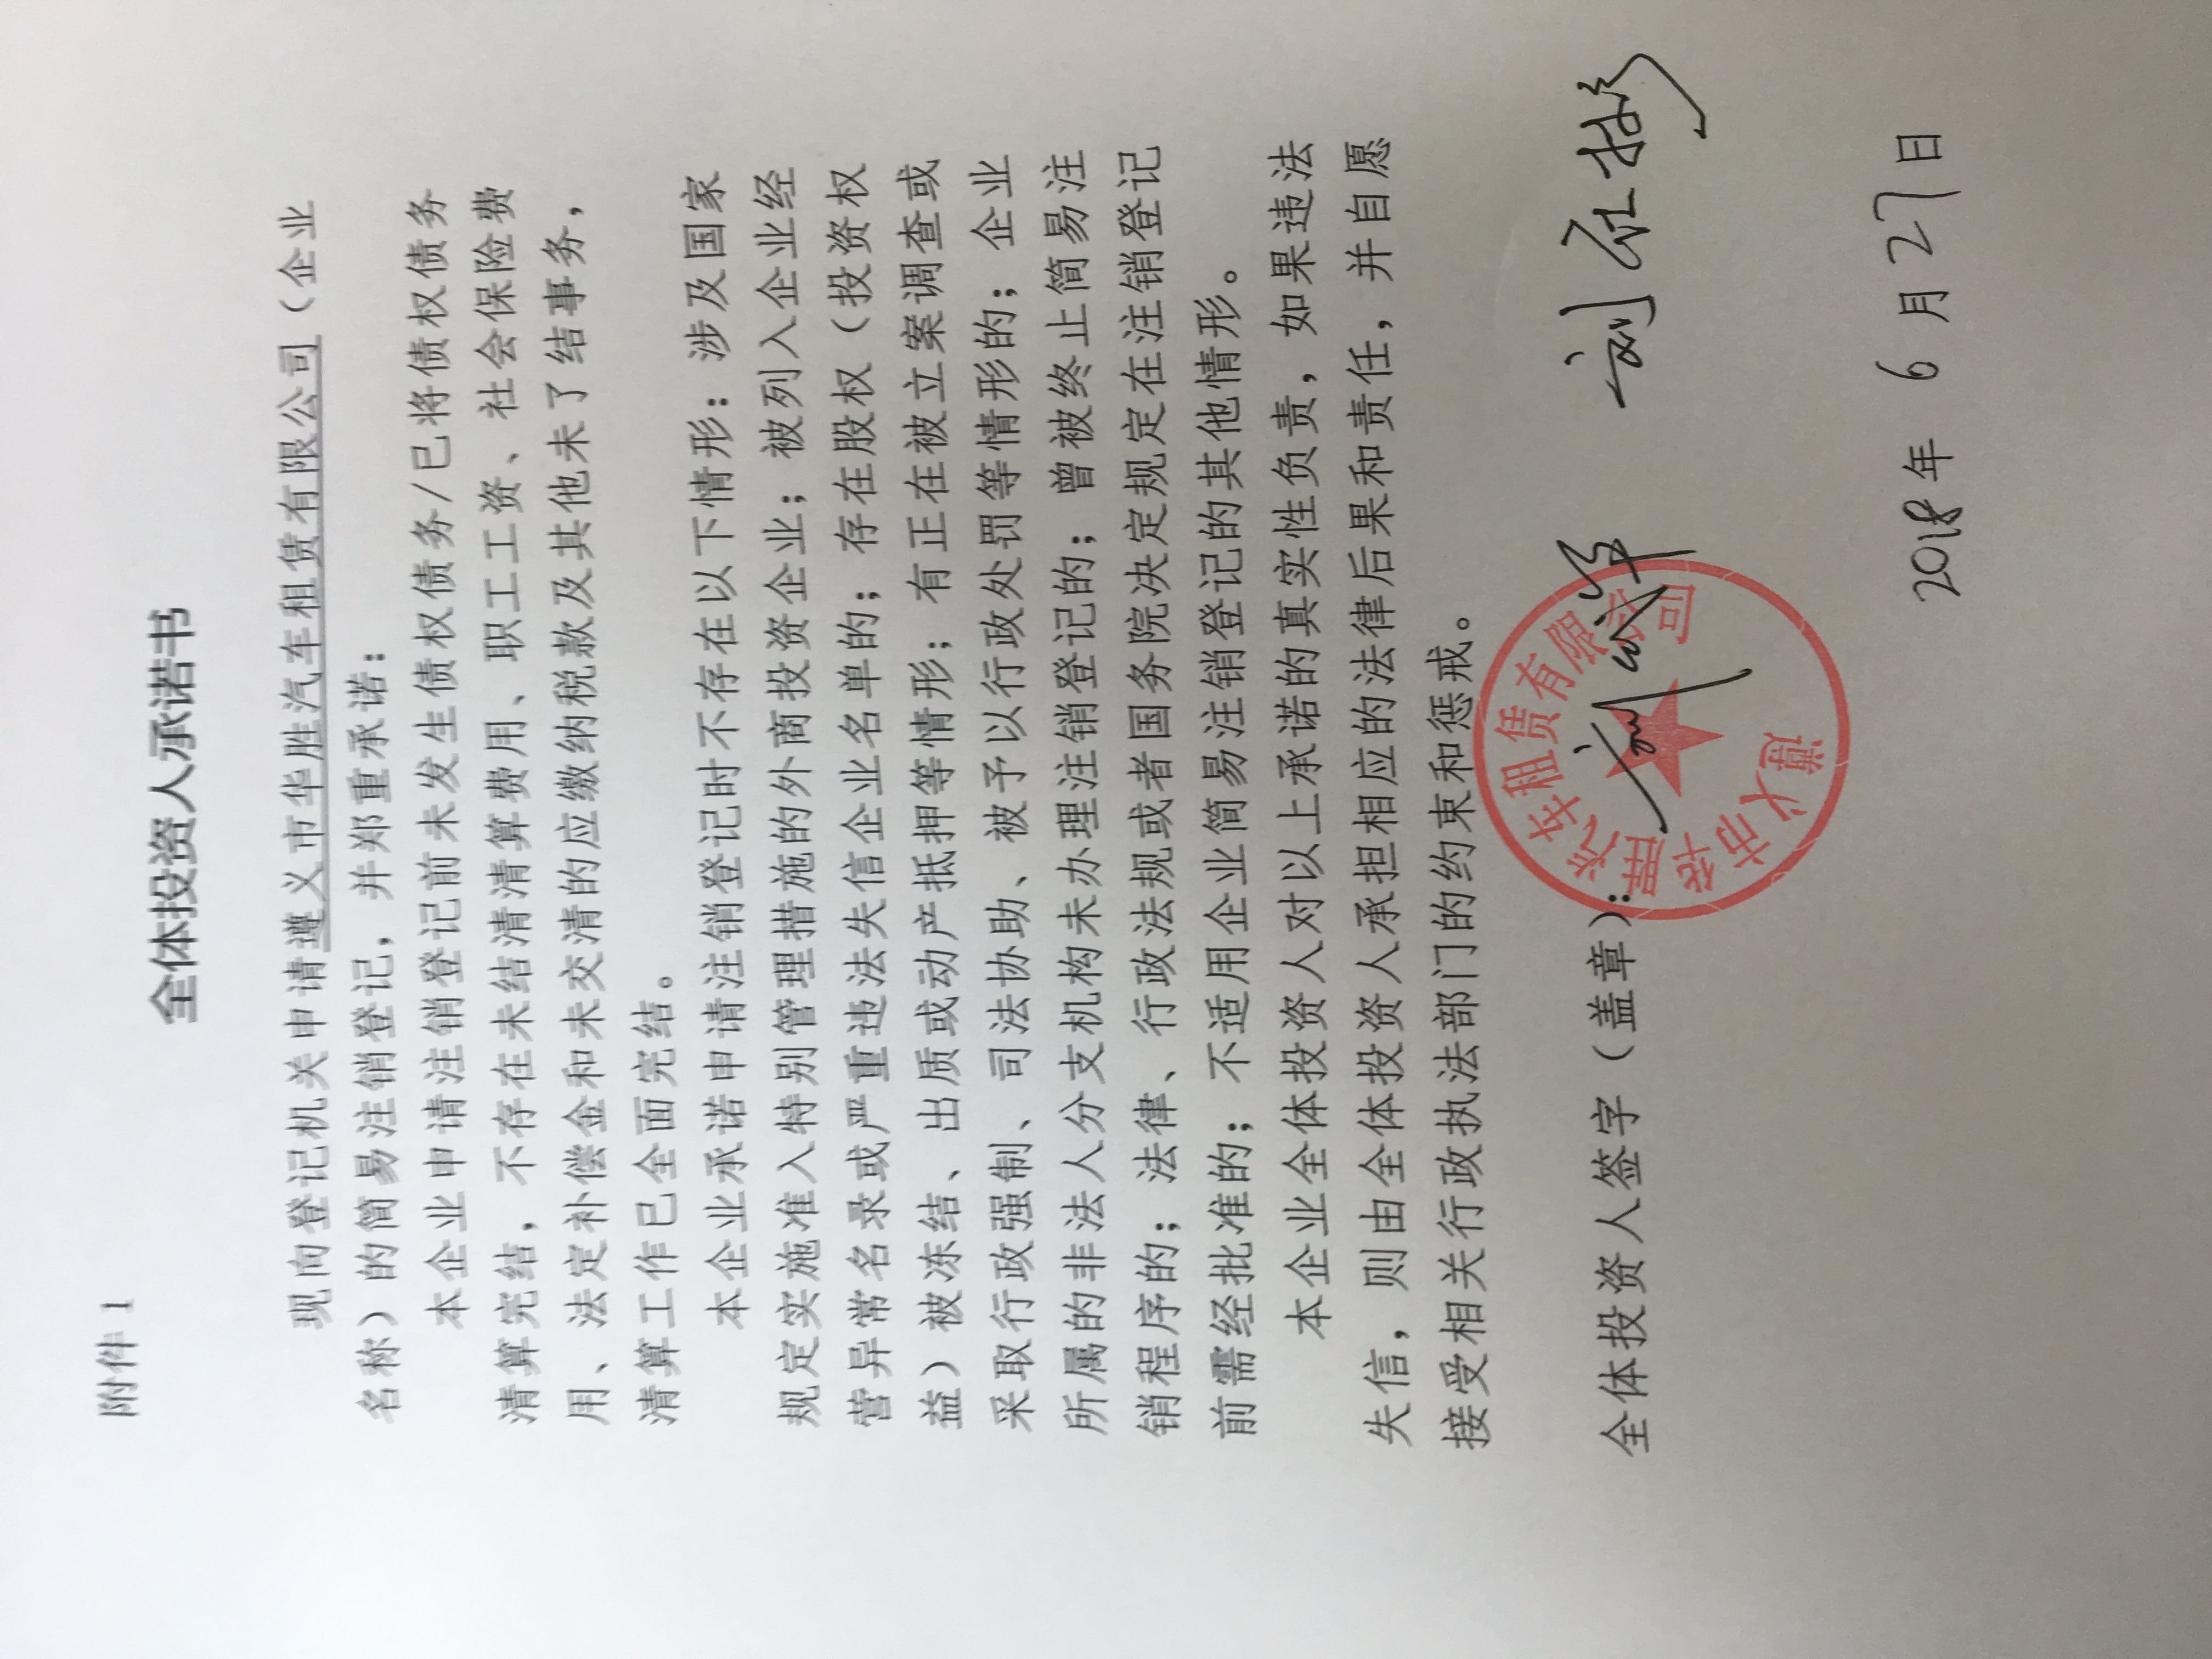 附件 1
全体投资人承诺书
现向登记机关申请遵义市华胜汽车租赁有限公司（企业
名称）的简易注销登记，并郑重承诺：
本企业申请注销登记前未发生债权债务/已将债权债务
清算完结，不存在未结清清算费用、职工工资、社会保险费
用、法定补偿金和未交清的应缴纳税款及其他未了结事务，
清算工作已全面完结。
本企业承诺申请注销登记时不存在以下情形：涉及国家
规定实施准入特别管理措施的外商投资企业；被列入企业经
营异常名录或严重违法失信企业名单的；存在股权（投资权
益）被冻结、出质或动产抵押等情形；有正在被立案调查或
采取行政强制、司法协助、被予以行政处罚等情形的；企业
所属的非法人分支机构未办理注销登记的；曾被终止简易注
销程序的；法律、行政法规或者国务院决定规定在注销登记
前需经批准的；不适用企业简易注销登记的其他情形。
本企业全体投资人对以上承诺的真实性负责，如果违法
失信，则由全体投资人承担相应的法律后果和责任，并自愿
接受相关行政执法部门的约束和惩戒。
全体投资人签字（盖章）：
遵义市华胜汽车租赁有限公司
2018年 6月27日